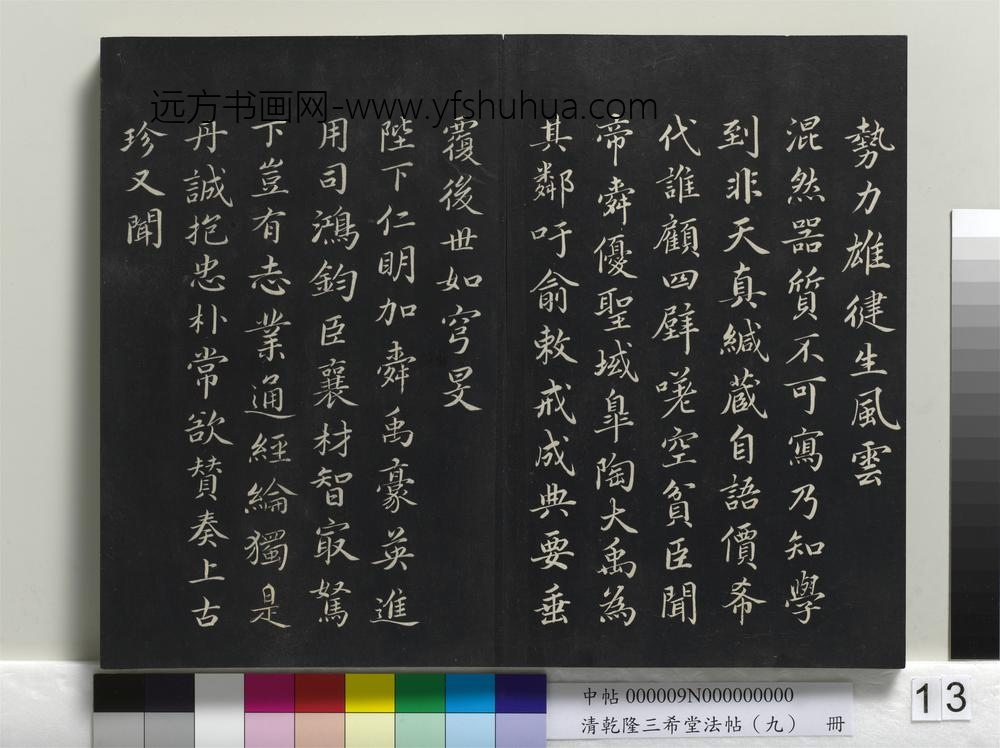 远方书画网-www.yfshuhua.com
勢力雄健生風雲
混然器質不可寫乃知學
到非天真緘藏自語價希
代誰顧四壁嗟空貧臣聞
帝舜優聖域皐陶大禹為
其鄰吁俞敕戒成典要垂
覆後世如穹旻
陛下仁明加舜禹豪英進
用司鴻鈞臣襄材智寂駑
下豈有志業通經綸獨是
丹誠抱忠朴常欲贊奏上古
珍又聞
中帖 000009N000000000
清乾隆三希堂法帖（九） 冊
13